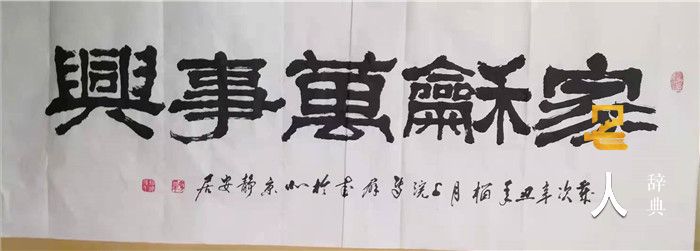 家龢萬事興
歲次辛丑年桐月上浣群書於北京靜安居
粤人
辞典